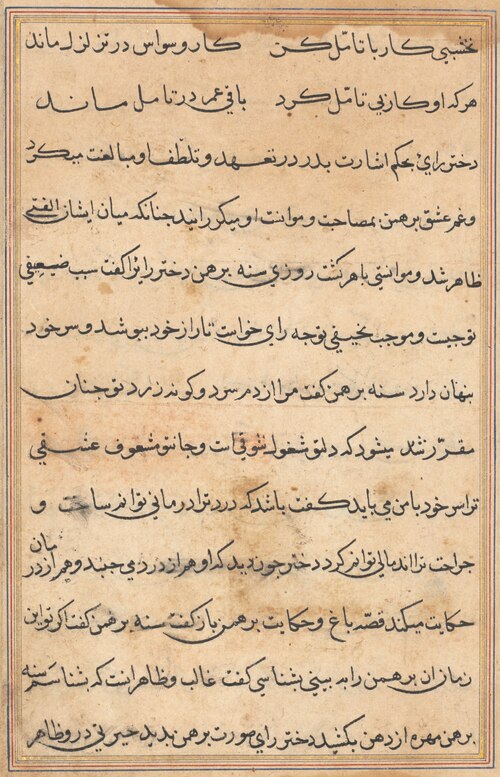 نخشبی کار با تامّل کن کار وسواس در تزلزل ماند
هرکه او کار بی تامّل کرد باقی عمر در تامل ماند
دختر رای بحکم اشارت پدر در تعهد و تلطف او مبالغت میکرد
و غم عشق برهمن بمصاحبت و موانست او میگذرانید جنانکه میان ایشان الفتی
ظاهر شد و موانستی باهر گشت روزی سنه برهن دختر رای را گفت سبب ضعیفی
توجیست و موجب نحیفی توجه رای خواست تا راز خود ببوشد و سر خود
بنهان دارد سنه برهمن گفت مرا از دم سرد و کونه زرد تو جنان
مقرّر شد میشود که دلتو شغول شوقی است و جانتو شعوف عشقی
تراسر خود با من می باید کفت باشد که درد ترا درمانی توانم ساخت و
جراحت ترا اندمالی توانم کرد دختر جون دید که او هم از درد می جنبد و هم از درمان
حکایت میکند قصّه باغ و حکایت برهمن باز کفت سنه برهمن کفت اکر تو این
زمان ان برهمن را به بینی بشناسی کفت غالب و ظاهر انست که بشناسم سنه
برهن مهره از دهن بکشید دختر رای صورت برهن بدید حیرتی در و ظاهر